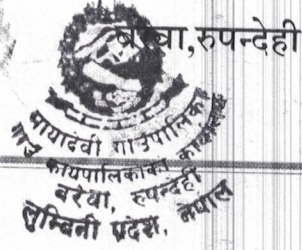 बरवा,रुपन्देही
मायादेवी गाउँपालिका
गाउँ कार्यपालिकाको कार्यालय
बरवा, रुपन्देही
लुम्बिनी प्रदेश, नेपाल